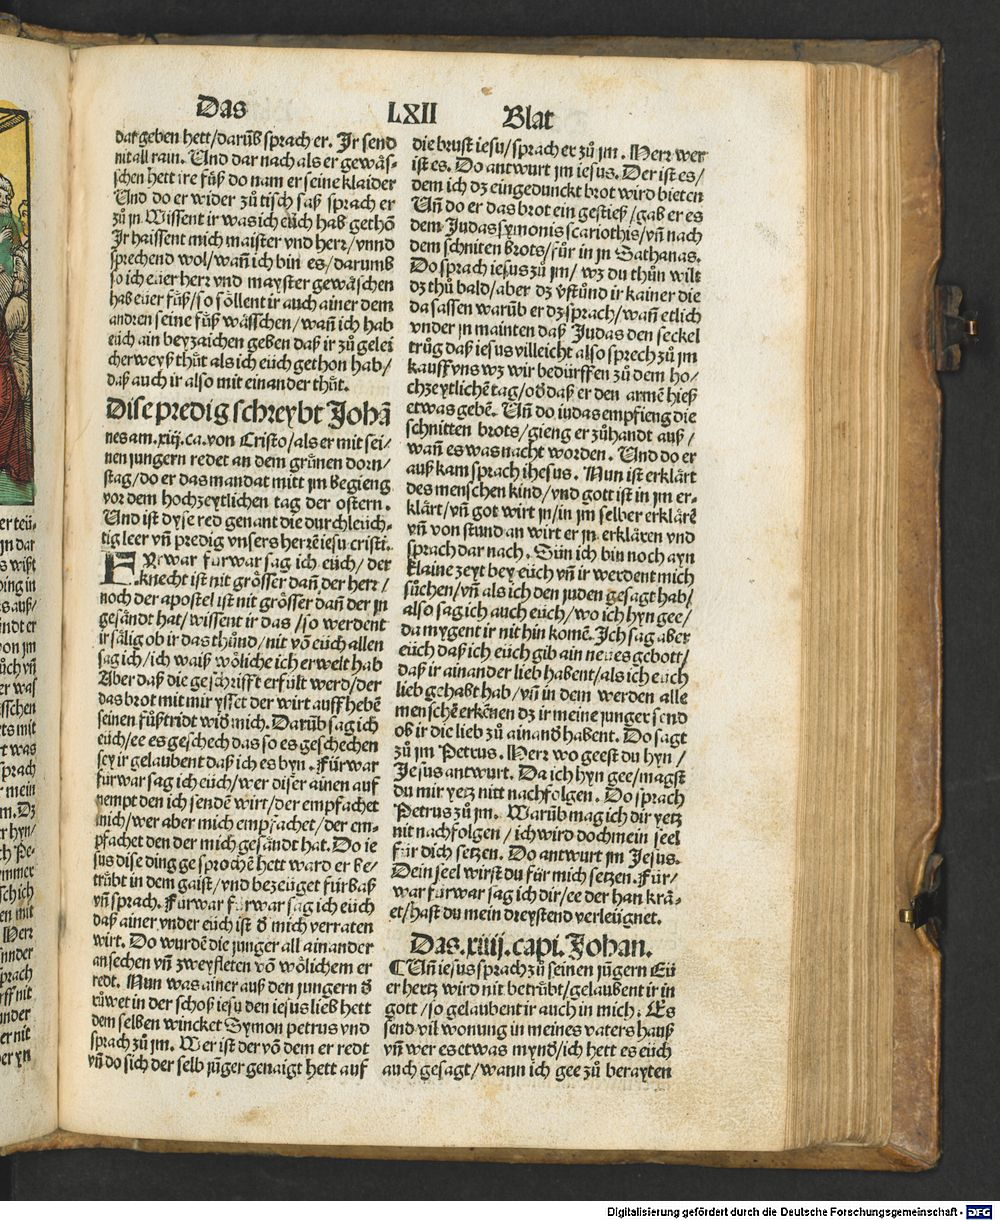 Das LXII Blat
dar geben hett/darūb sprach er. Jr send
nit all rain. Und dar nach als er gewäs-
schen hett ire füß do nam er seine klaider
Und do er wider zů tisch saß sprach er
zů jn Wissent ir was ich eüch hab gethō
Jr haissent mich maister vnd herr/vnnd
sprechend wol/wañ ich bin es/darumb
so ich euer herr vnd mayster gewäschen
hab euer füß/so söllent ir auch ainer dem
andren seine füß wässchen/wañ ich hab
eüch ain beyzaichen geben daß ir zů gelei
cherweyß thüt als ich eüch gethon hab/
daß auch ir also mit einander thüt.
Dise predig schreybt Johā
nes am .xiij. ca. von Cristo/als er mit sei/
nen jungern redet an dem grünen dorn/
stag/do er das mandat mitt jm begieng
vor dem hochzeytlichen tag der ostern.
Und ist dyse red genant die durchleüch-
tig leer vñ predig vnsers herrē iesu cristi.
Fürwar furwar sag ich eüch/der
knecht ist nit grösser dañ der herr/
noch der apostel ist nit grösser dañ der jn
gesandt hat/wissent ir das/so werdent
ir sälig ob ir das thünd/nit vō eüch allen
sag ich/ich waiß wöliche ich erwelt hab
Aber daß die geschrifft erfült werd/der
das brot mit mir ysset der wirt auff hebē
seinen füßtridt wid mich. Darūb sag ich
eüch/ee es geschech das so es geschechen
sey ir gelaubent daß ich es byn. Fürwar
fürwar sag ich eüch/wer diser ainen auf
nempt den ich sendē wirt/der empfachet
mich/wer aber mich empfachet/der em-
pfachet den der mich gesandt hat. Do ie
sus dise ding gesprochē hett ward er be-
trübt in dem gaist/vnd bezeüget fürbaß
vñ sprach. Fürwar fürwar sag ich eüch
daß ainer vnder eüch ist d mich verraten
wirt. Do wurdē die junger all ainander
ansechen vñ zweyfleten vō wölichem er
redt. Nun was ainer auß den jungern d
růwet in der schoß iesu den iesus lieb hett
dem selben wincket Symon petrus vnd
sprach zů jm. Wer ist der vō dem er redt
vñ do sich der selb jüger genaigt hett auf
die brust iesu/sprach er zů jm. Herr wer
ist es. Do antwurt jm iesus. Der ist es/
dem ich dz eingedunckt brot wird bieten
Uñ do er das brot ein gestieß/gab er es
dem Judas symonis scariothis/vñ nach
dem schniten brots/für in jn Sathanas.
Do sprach iesus zů jm/wz du thůn wilt
dz thů bald/aber dz v̄stůnd ir kainer die
da sassen warūb er dz sprach/wañ etlich
vnder jn mainten daß Judas den seckel
trůg daß iesus villeicht also sprech zů jm
kauff vns wz wir bedürffen zů dem ho/
chzeytlichē tag/od daß er den armē hieß
etwas gebē. Uñ do iudas empfieng die
schnitten brots/gieng er zůhandt auß/
wañ es was nacht worden. Und do er
auß kam sprach ihesus. Nun ist erklärt
des menschen kind/vnd gott ist in jm er-
klärt/vñ got wirt jn/in jm selber erklärē
vñ von stund an wirt er jn erklären vnd
sprach dar nach. Sün ich bin noch ayn
klaine zeyt bey eüch vñ ir werdent mich
sůchen/vñ als ich den juden gesagt hab/
also sag ich auch eüch/wo ich hyn gee/
da mygent ir nit hin komē. Ich sag aber
eüch daß ich eüch gib ain neues gebott/
daß ir ainander lieb habent/als ich euch
lieb gehabt hab/vñ in dem werden alle
menschē erkēnen dz ir meine junger send
ob ir die lieb zů ainand habent. Do sagt
zů jm Petrus. Herr wo geest du hyn/
Jesus antwurt. Da ich hyn gee/magst
du mir yetz nitt nachfolgen. Do sprach
Petrus zů jm. Warūb mag ich dir yetz
nit nachfolgen/ich wird doch mein seel
für dich setzen. Do antwurt jm Jesus.
Dein seel wirst du für mich setzen. Für/
war fürwar sag ich dir/ee der han krä-
et/hast du mein dreystend verleügnet.
Das .xiiij. capi. Johan.
Uñ iesus sprach zů seinen jügern Eü
er hertz wird nit betrübt/gelaubent ir in
gott/so gelaubent ir auch in mich. Es
send vil wonung in meines vaters hauß
vñ wer es etwas mynd/ich hett es eüch
auch gesagt/wann ich gee zů berayten
Digitalisierung gefördert durch die Deutsche Forschungsgemeinschaft - DFG